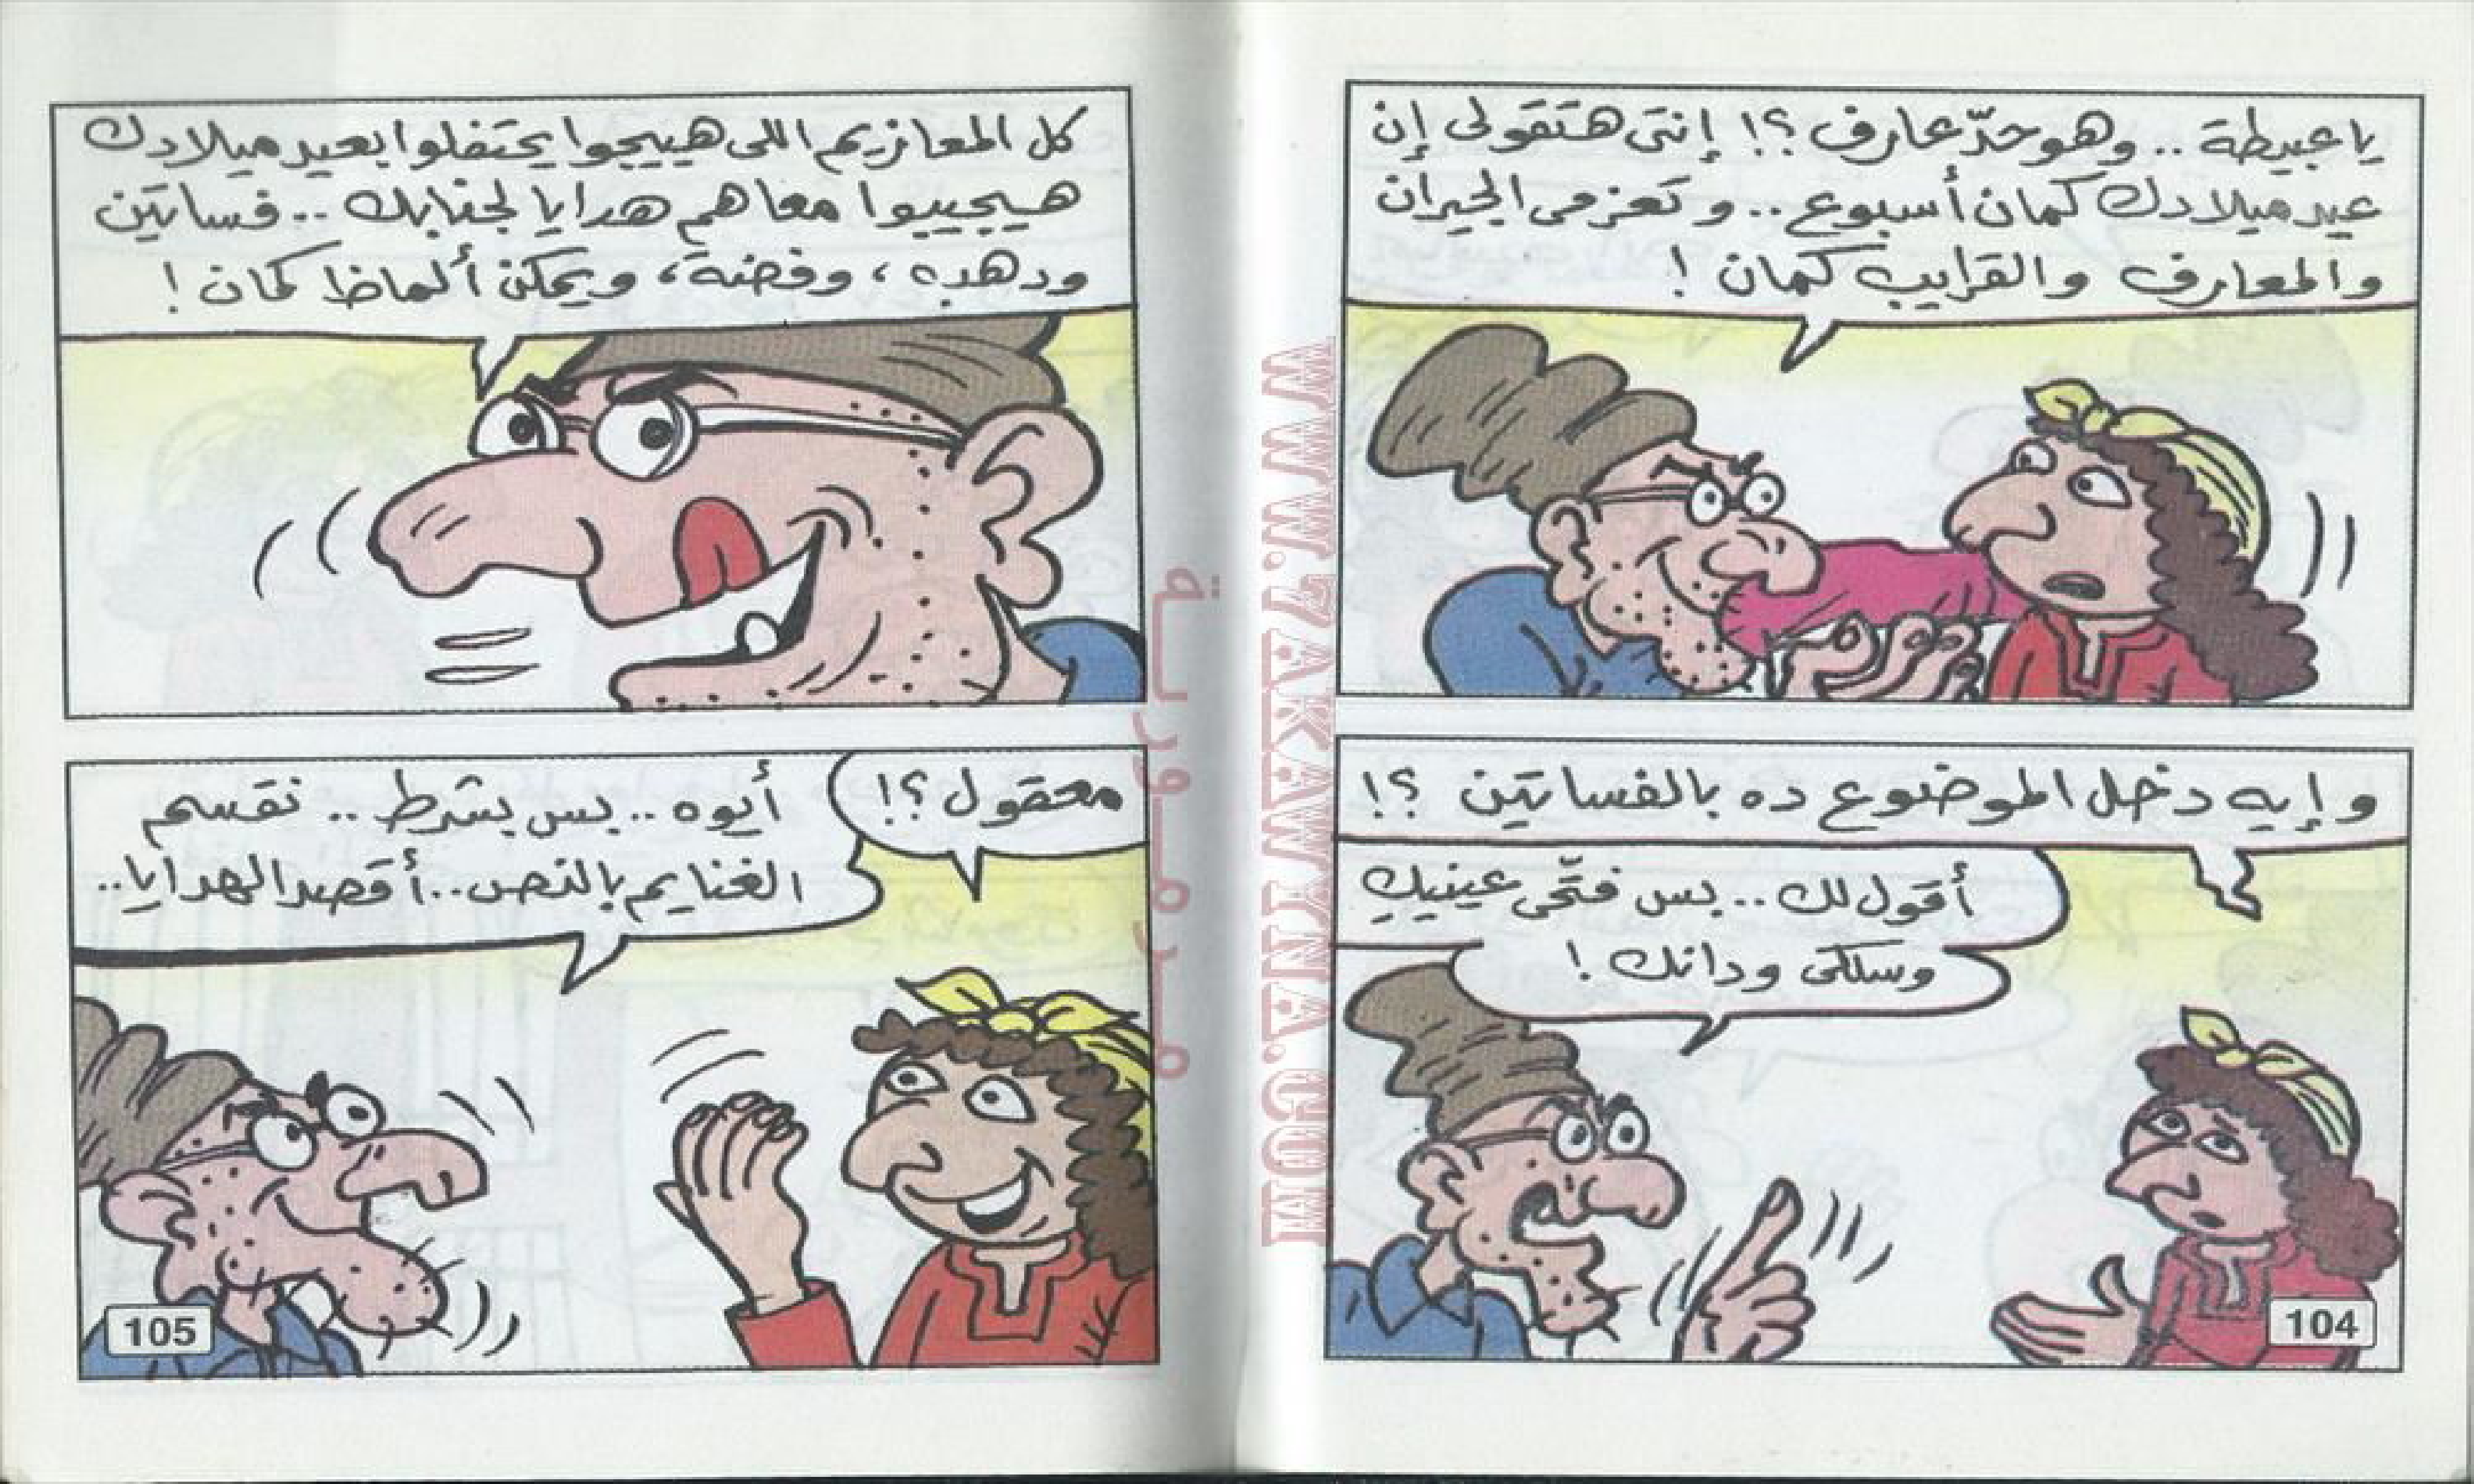 يا عبيطة .. وهو حدّ عارف ؟! إنتى هتقولى إن
عيد ميلادك كمان أسبوع .. وتعزمى الجيران
والمعارف والقرايب كمان !
وإيه دخل الموضوع ده بالفساتين ؟!
أقول لك .. بس فتّحى عينيكِ
وسلكى ودانك !
104
كل المعازيم اللى هييجوا يحتفلوا بعيد ميلادك
هيجيبوا معاهم هدايا لجنابك .. فساتين
ودهب ، وفضة ، ويمكن ألماظ كمان !
معقول ؟!
أيوه .. بس بشرط .. نقسم
الغنايم بالنص .. أقصد الهدايا ..
105
WWW.7AKAWINA.COM
مدمورية